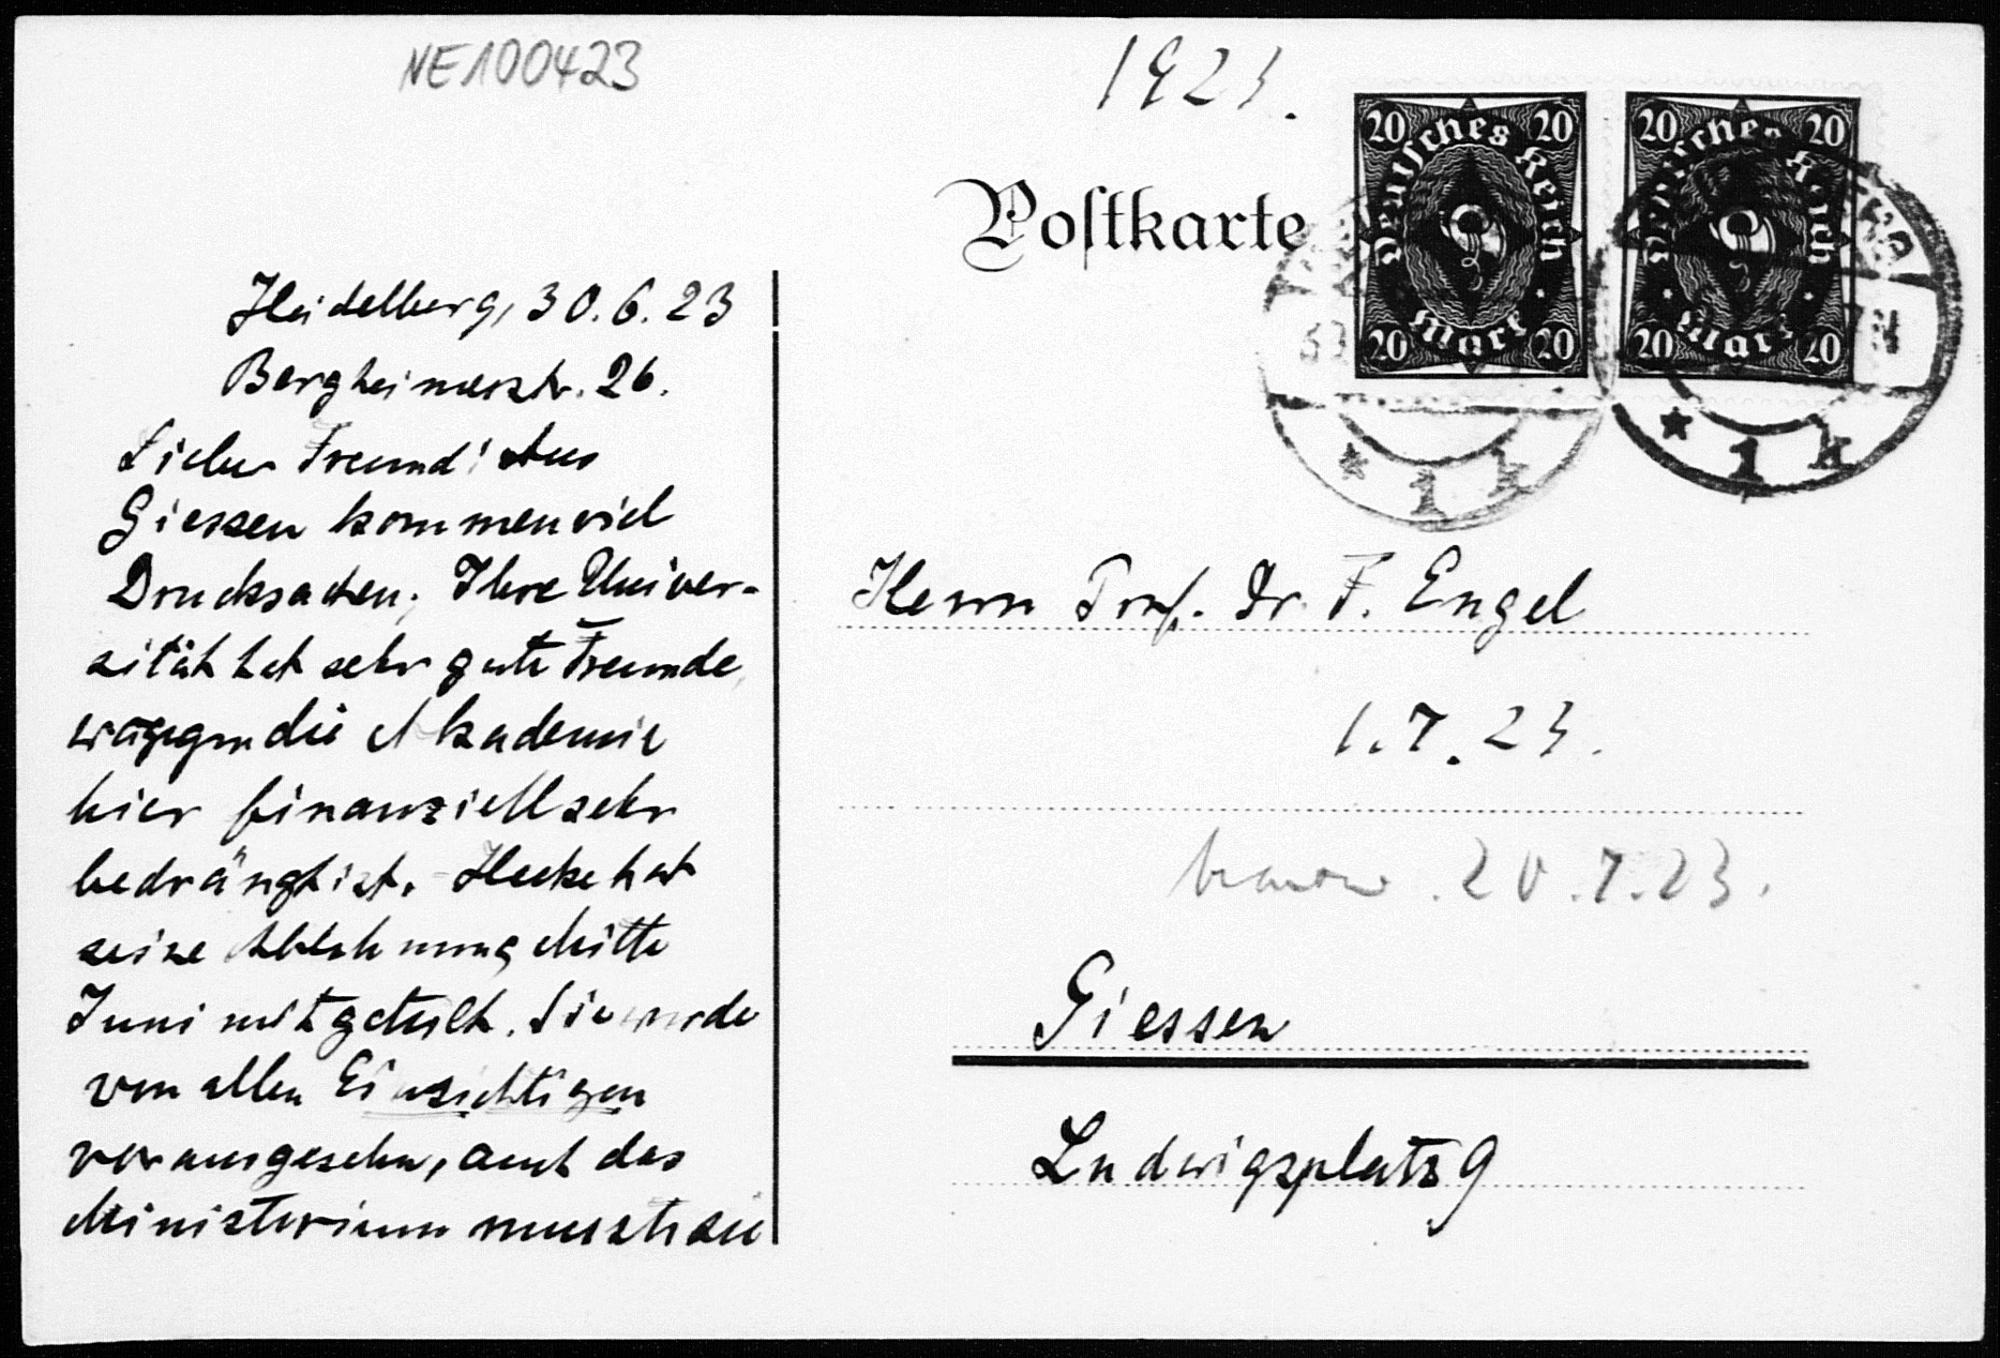 NE100423
1923.
Postkarte
20 20
Deutsches Reich
Mark
20 20
20 20
Deutsches Reich
Mark
20 20
* 1 k
* 1 k
Heidelberg, 30.6.23
Bergheimerstr. 26.
Lieber Freund! Aus
Giessen kommen viel
Drucksachen; Ihre Univer-
sität hat sehr gute Freunde,
wogegen die Akademie
hier finanziell sehr
bedrängt ist. - Hecke hat
seine Ablehnung Mitte
Juni mitgeteilt. Sie wurde
von allen Einsichtigen
vorausgesehn, auch das
Ministerium musste sie
Herrn Prof. Dr. F. Engel
1.7.23.
20.7.23.
Giessen
Ludwigsplatz 9